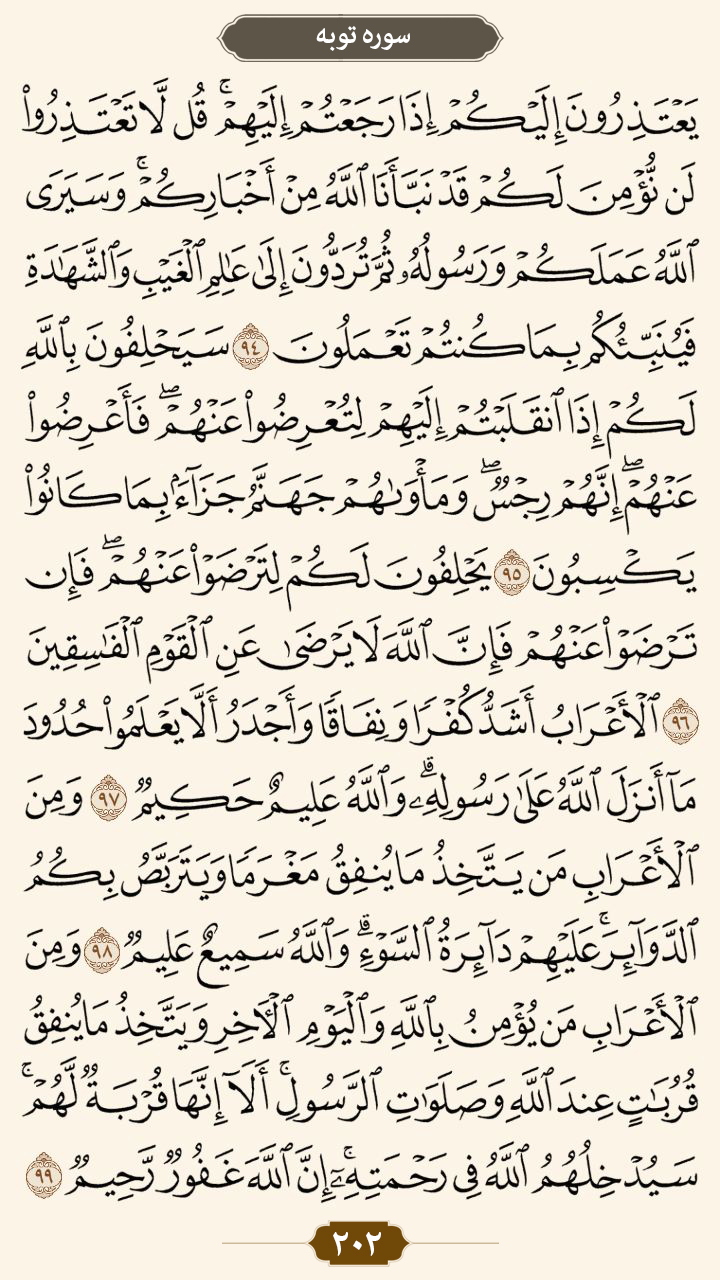 سوره توبه
يَعْتَذِرُونَ إِلَيْكُمْ إِذَا رَجَعْتُمْ إِلَيْهِمْ ۚ قُل لَّا تَعْتَذِرُوا۟
لَن نُّؤْمِنَ لَكُمْ قَدْ نَبَّأَنَا ٱللَّهُ مِنْ أَخْبَارِكُمْ ۚ وَسَيَرَى
ٱللَّهُ عَمَلَكُمْ وَرَسُولُهُۥ ثُمَّ تُرَدُّونَ إِلَىٰ عَـٰلِمِ ٱلْغَيْبِ وَٱلشَّهَـٰدَةِ
فَيُنَبِّئُكُم بِمَا كُنتُمْ تَعْمَلُونَ ٩٤ سَيَحْلِفُونَ بِٱللَّهِ
لَكُمْ إِذَا ٱنقَلَبْتُمْ إِلَيْهِمْ لِتُعْرِضُوا۟ عَنْهُمْ ۖ فَأَعْرِضُوا۟
عَنْهُمْ ۖ إِنَّهُمْ رِجْسٌ ۖ وَمَأْوَىٰهُمْ جَهَنَّمُ جَزَآءًۢ بِمَا كَانُوا۟
يَكْسِبُونَ ٩٥ يَحْلِفُونَ لَكُمْ لِتَرْضَوْا۟ عَنْهُمْ ۖ فَإِن
تَرْضَوْا۟ عَنْهُمْ فَإِنَّ ٱللَّهَ لَا يَرْضَىٰ عَنِ ٱلْقَوْمِ ٱلْفَـٰسِقِينَ
٩٦ ٱلْأَعْرَابُ أَشَدُّ كُفْرًا وَنِفَاقًا وَأَجْدَرُ أَلَّا يَعْلَمُوا۟ حُدُودَ
مَآ أَنزَلَ ٱللَّهُ عَلَىٰ رَسُولِهِۦ ۗ وَٱللَّهُ عَلِيمٌ حَكِيمٌ ٩٧ وَمِنَ
ٱلْأَعْرَابِ مَن يَتَّخِذُ مَا يُنفِقُ مَغْرَمًا وَيَتَرَبَّصُ بِكُمُ
ٱلدَّوَآئِرَ ۚ عَلَيْهِمْ دَآئِرَةُ ٱلسَّوْءِ ۗ وَٱللَّهُ سَمِيعٌ عَلِيمٌ ٩٨ وَمِنَ
ٱلْأَعْرَابِ مَن يُؤْمِنُ بِٱللَّهِ وَٱلْيَوْمِ ٱلْـَٔاخِرِ وَيَتَّخِذُ مَا يُنفِقُ
قُرُبَـٰتٍ عِندَ ٱللَّهِ وَصَلَوَٰتِ ٱلرَّسُولِ ۚ أَلَآ إِنَّهَا قُرْبَةٌ لَّهُمْ ۚ
سَيُدْخِلُهُمُ ٱللَّهُ فِى رَحْمَتِهِۦٓ ۗ إِنَّ ٱللَّهَ غَفُورٌ رَّحِيمٌ ٩٩
٢٠٢